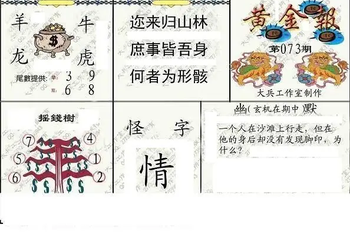 羊 牛
龙 虎
$
尾數提供: 3 9
6 8
迩来归山林
庶事皆吾身
何者为形骸
黄金報
第073期
大兵工作室制作
摇錢樹
⑦ ④
⑤ ①
⑥ ②
怪 字
情
玄机在期中
一个人在沙滩上行走，但在
他的身后却没有发现脚印，为
什么？